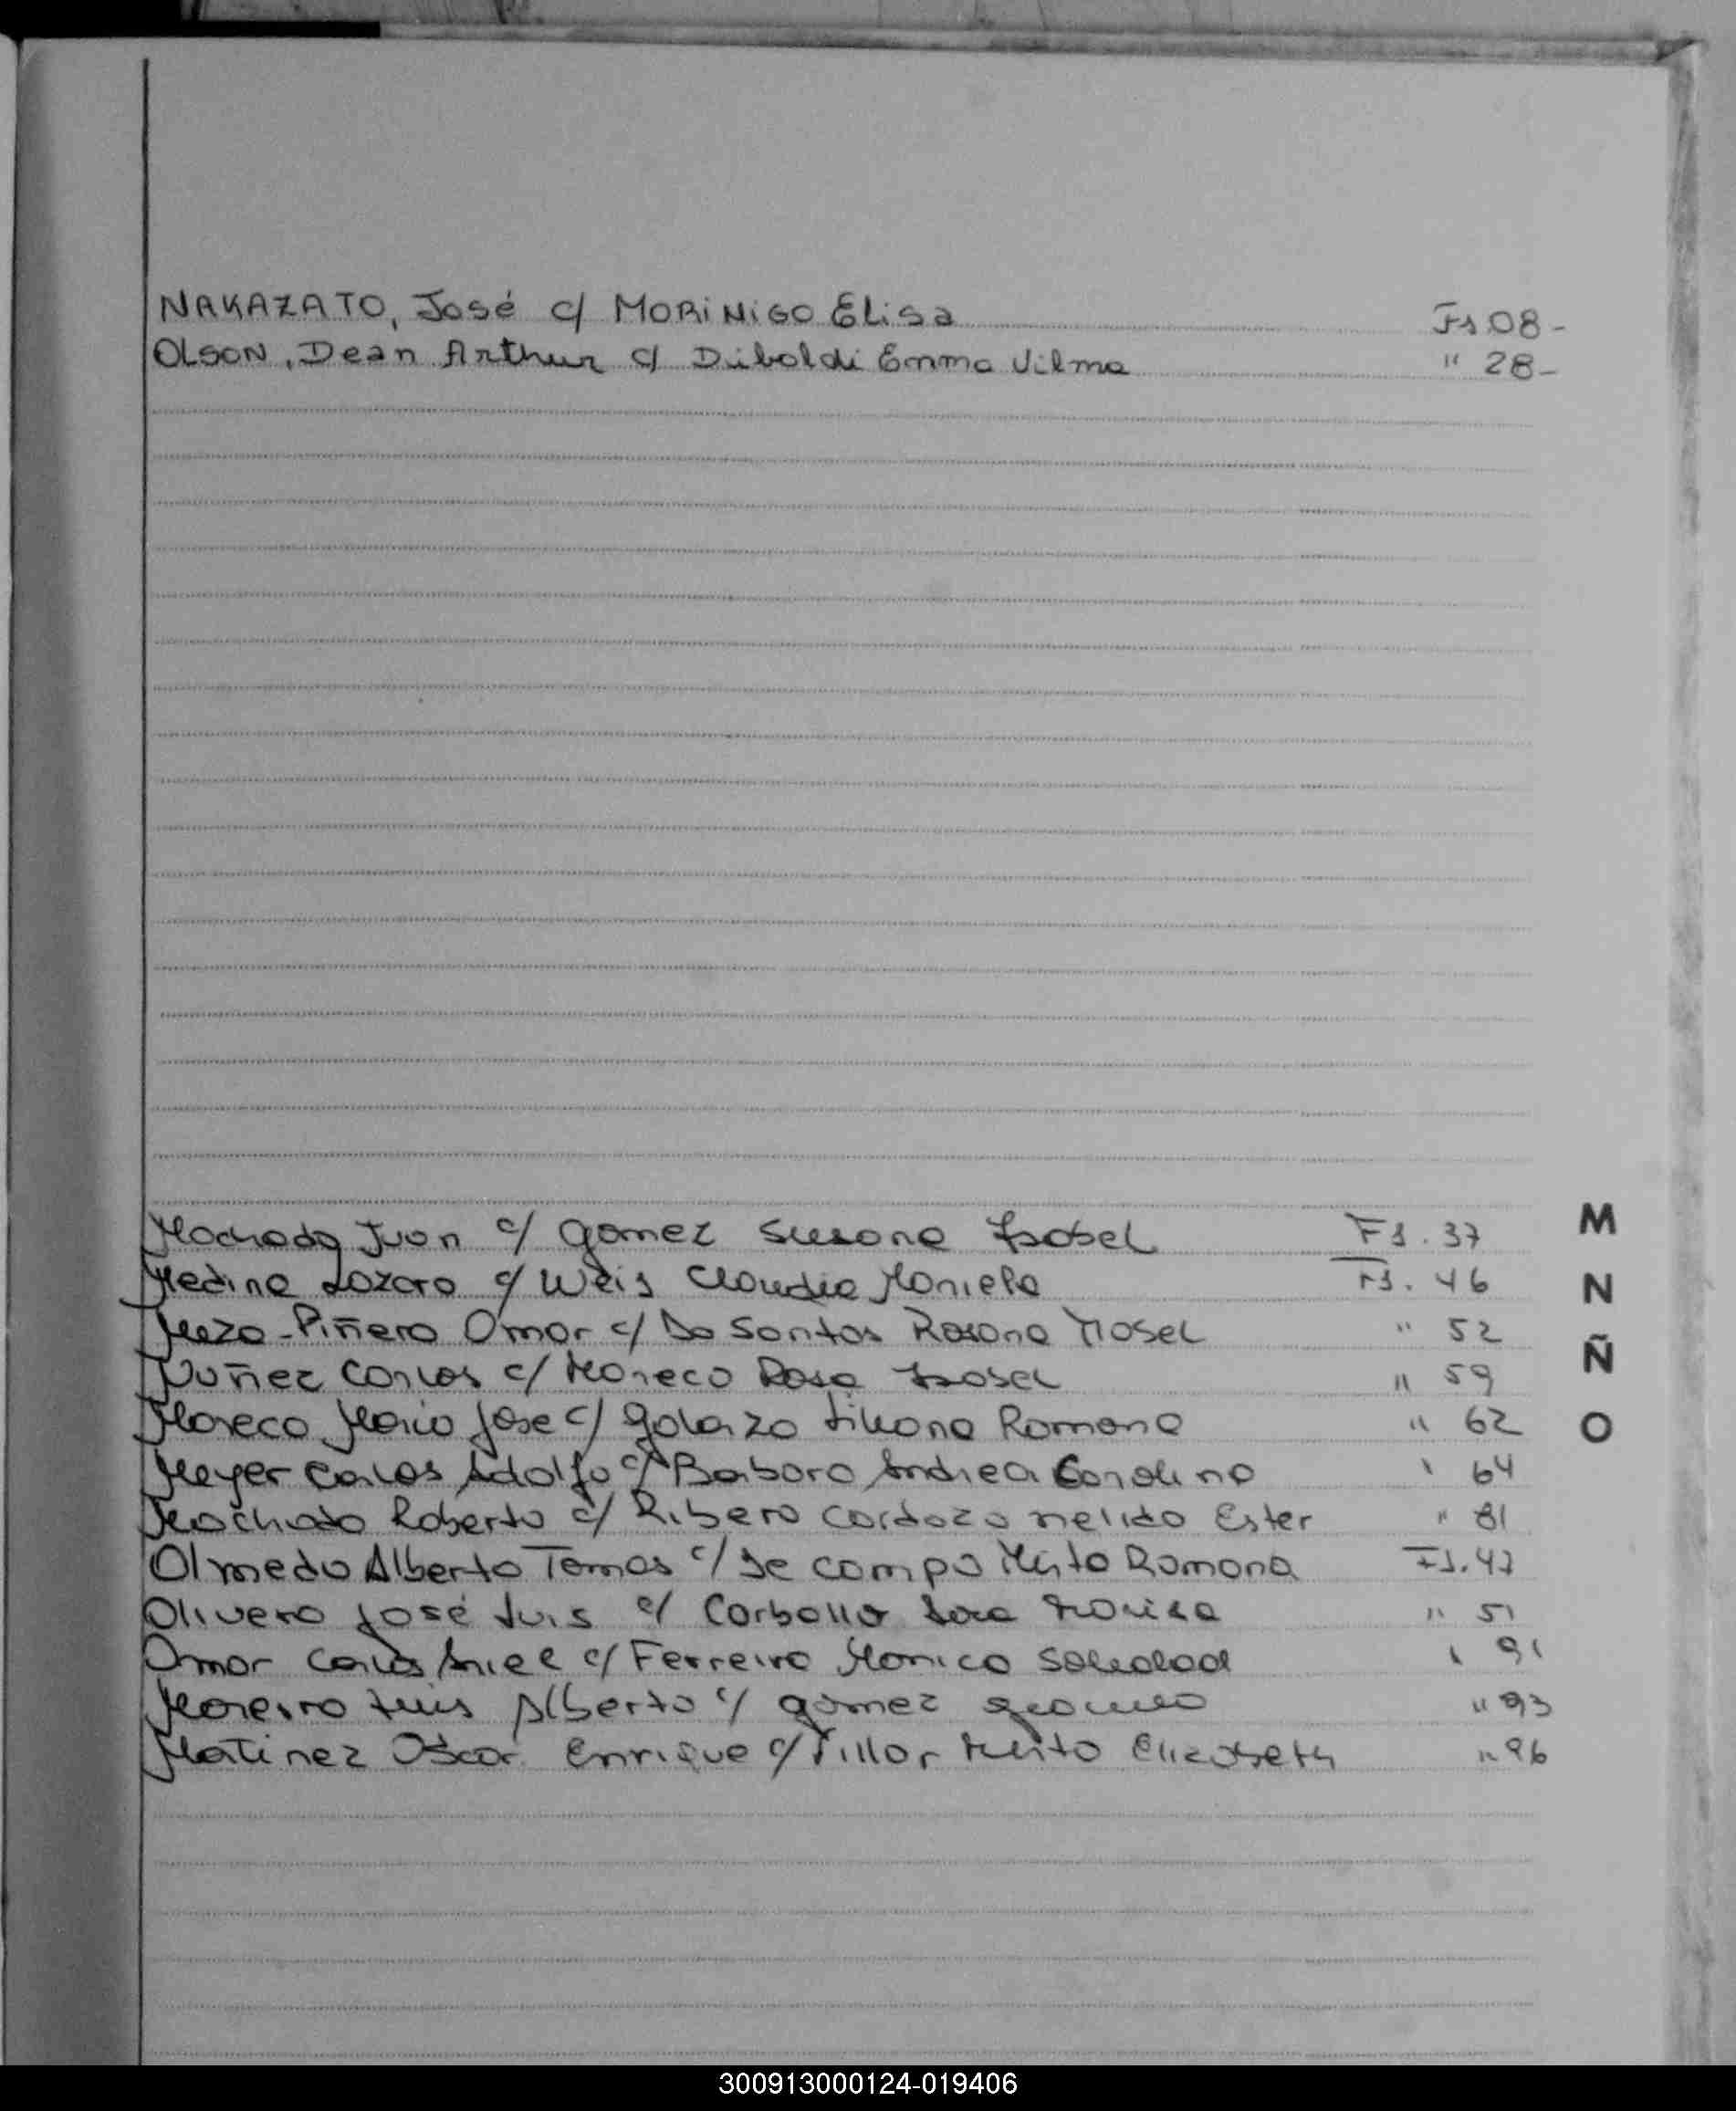 NAKAZATO, José c/ MORINIGO Elisa Fs 08-
OLSON, Dean Arthur c/ Duboldi Emma Vilma " 28-
Machado Juan c/ Gomez Susana Isabel Fs. 37
Medina Lozaro c/ Weis Claudia Mariela Fs. 46
Meza-Piñero Omar c/ Do Santos Rosana Mabel " 52
Nuñez Carlos c/ Mareco Rosa Isabel " 59
Mareco Mario Jose c/ Galarza Liliana Romana " 62
Meyer Carlos Adolfo c/ Barboro Andrea Carolina " 64
Machado Roberto c/ Ribero Cardozo nelida Ester " 81
Olmedo Alberto Tomas c/ De Campo Mirta Ramona Fs. 47
Olivera José Luis c/ Carballo Sara " 51
Omar Carlos Ariel c/ Ferreira Monica Soledad " 91
Moreira Luis Alberto c/ gomez " 93
Matinez Oscar Enrique c/ Villar Mirta Elizabeth " 96
M
N
Ñ
O
300913000124-019406